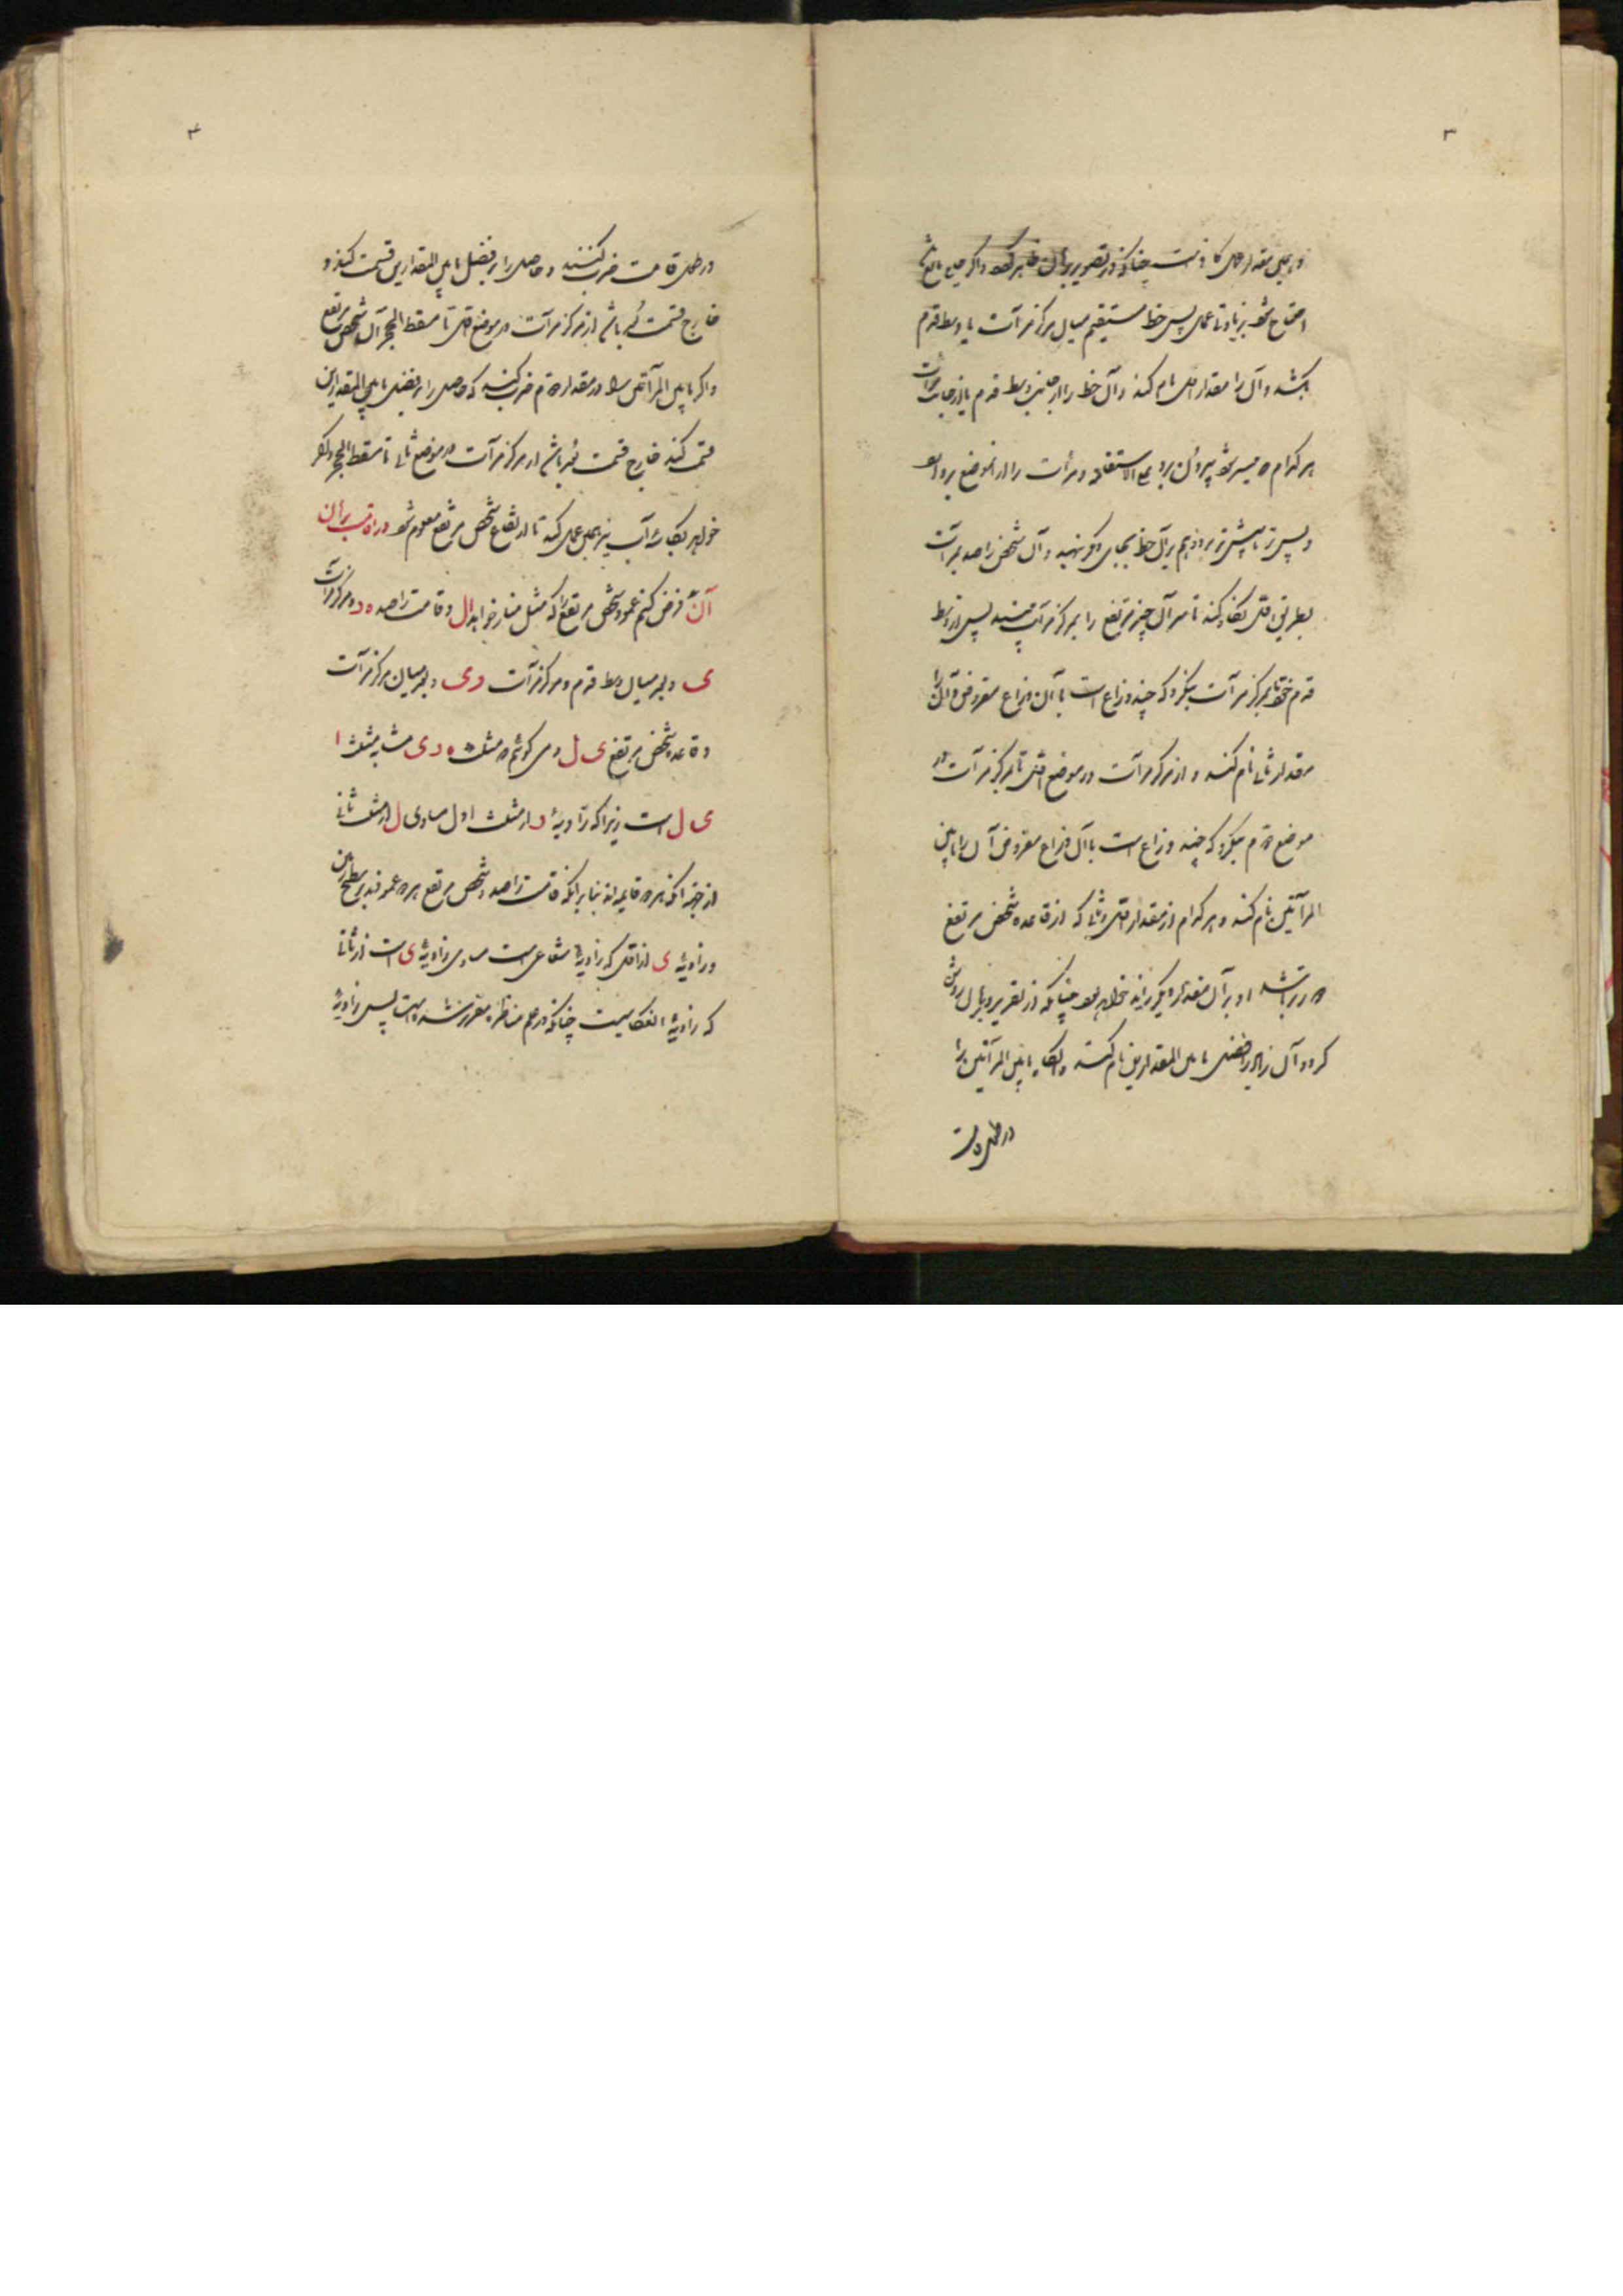 ۳
احتیاج شود بزیادتی عمل پس خط مستقیم میان مرکز مرآت با وسط قدم
بکشد و آن را مقدار اول نام کند و آن خط را از جانب وسط قدم یا از جانب مرآت
هر کدام که میسر شود بیرون برد علی الاستقامه و مرآت را از آن موضع بردارد
و پس تر یا پیش تر برد هم بر آن خط بجای دیگر نهد و آن شخص راصد بمرآت
بطریق اول نگاه کند تا سر آن چیز مرتفع را بمرکز مرآت بیند پس از وسط
قدم خود تا بمرکز مرآت بنگرد که چند ذراع است بآن ذراع مفروض و آن را
مقدار ثانی نام کند و از مرکز مرآت در موضع اول تا بمرکز مرآت در
موضع دوم بنگرد که چند ذراع است بآن ذراع مفروض آن را مابین
المرآتین نام کند و هر کدام از مقدار اول و ثانی که از قاعده شخص مرتفع
دورتر باشد او بر آن مقدار دیگر زاید خواهد بود چنانکه از تقریر برهان روشن
گردد آن زاید را فضل مابین المقدارین نام کند و انگاه مابین المرآتین را
در طول قامت
۴
در طول قامت ضرب کنند و حاصل را بر فضل مابین المقدارین قسمت کند و
خارج قسمت بعد باشد از مرکز مرآت در موضع اول تا مسقط الحجر آن شخص مرتفع
و اگر مابین المرآتین را در مقدار دوم ضرب کنند که حاصل را بر فضل مابین المقدارین
قسمت کند خارج قسمت بعد باشد از مرکز مرآت در موضع ثانی تا مسقط الحجر و اگر
خواهد بجای مرآت آب نیز همین عمل کند تا ارتفاع شخص مرتفع معلوم شود در اقامت برهان
آن فرض کنیم عمود شخص مرتفع را که مثل منار خواهد ا ل و قامت راصد ه د و مرکز مرآت
ی و بعد میان وسط قدم و مرکز مرآت د ی و بعد میان مرکز مرآت
و قاعده شخص مرتفع ی ل و می گوئیم که مثلث ه د ی مشابه مثلث ا
ی ل است زیرا که زاویهٔ د از مثلث اول مساوی ل از مثلث ثانی
از جهت آنکه هر دو قایمه اند بنابر آنکه قامت راصد و شخص مرتفع هر دو عمودند بر سطح زمین
و زاویهٔ ی از اول که زاویهٔ شعاعی است مساوی زاویهٔ ی است از ثانی
که زاویهٔ انعکاسیست چنانکه در علم مناظر مقرر شده است پس زاویهٔ